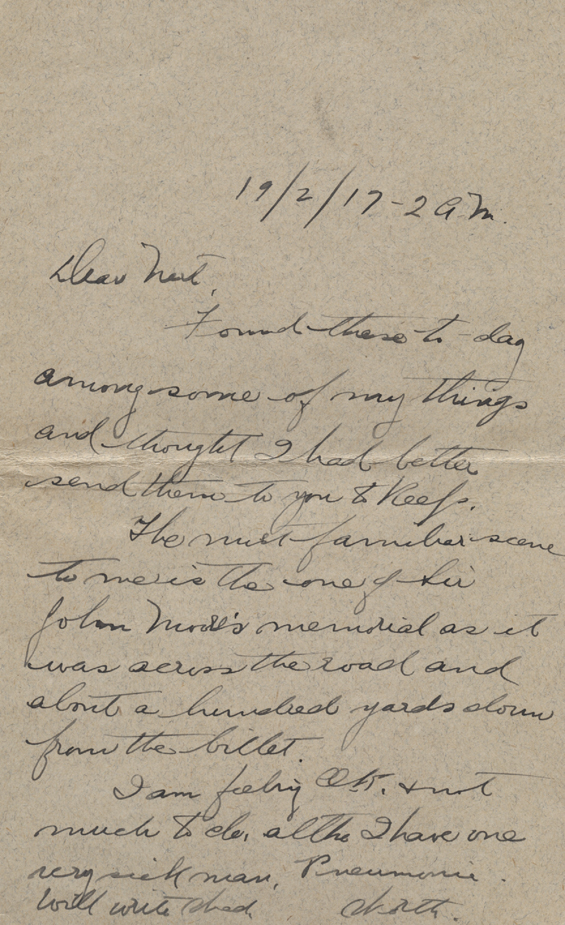 19/2/17 - 2 A.M.
Dear
Found these to-day
among some of my things
and thought I had better
send them to you to keep.
The most familiar scene
to me is the one of Sir
John Moore's memorial as it
was across the road and
about a hundred yards down
from the billet.
I am feeling O.K. & not
much to do, altho I have one
very sick man, Pneumonia.
Will write